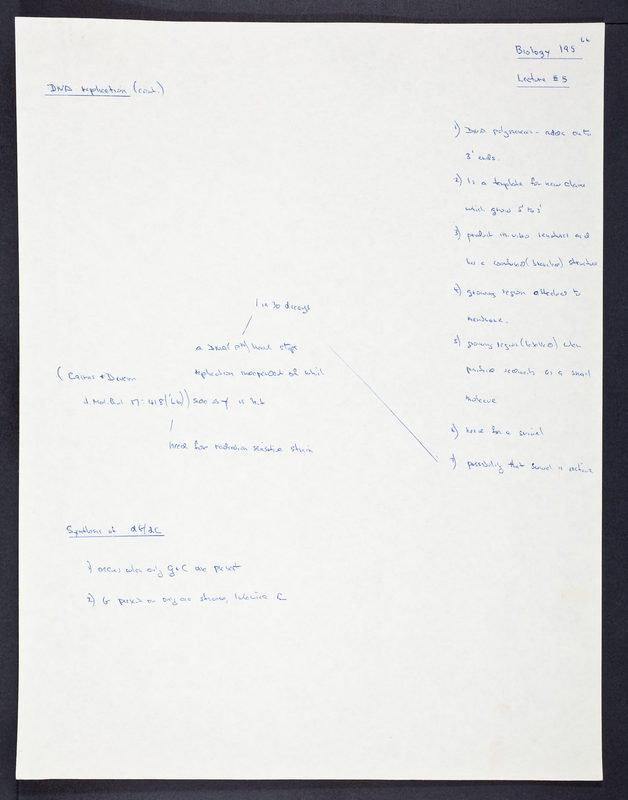 Biology 195
Lecture #5
DNA replication (cont.)
1) DNA polymerase - adds onto
3' ends.
2) Is a template for new chains
which grow 5' to 3'
3) product in vitro renatures and
has a continuous (branched) structure
4) growing region attached to
membrane.
5) growing region (labelled) when
purified sediments as a small
molecule
6) need for a swivel
7) possibility that swivel is active
1 in 30 decays
a DNA ³H have stops
(Cairns + Davern
replication independent of which
J. Mol. Biol. 17: 418 ('66)) is hit
need for radiation sensitive strain
Synthesis of dG/dC
1) occurs when only G + C are present
2) G present on only one strand, likewise C